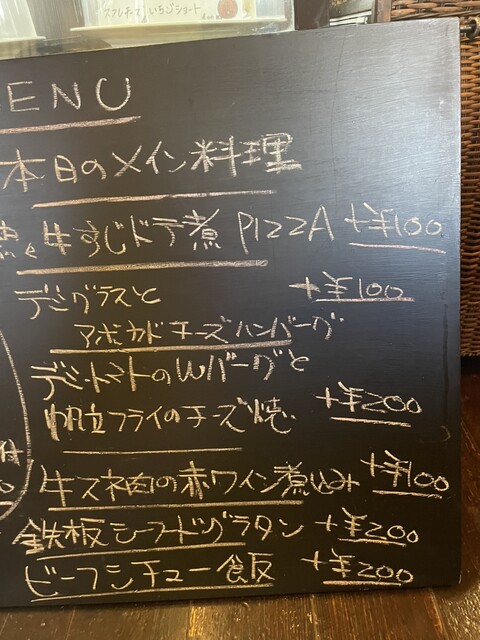 スフレチーズ いちごショート
ENU
本日のメイン料理
牛すじドテ煮 PIZZA +¥100
デミグラスと +¥100
アボカドチーズハンバーグ
デミトマトのWバーグと
帆立フライのチーズ焼 +¥200
牛スネ肉の赤ワイン煮込み +¥100
鉄板シーフードグラタン +¥200
ビーフシチュー食飯 +¥200